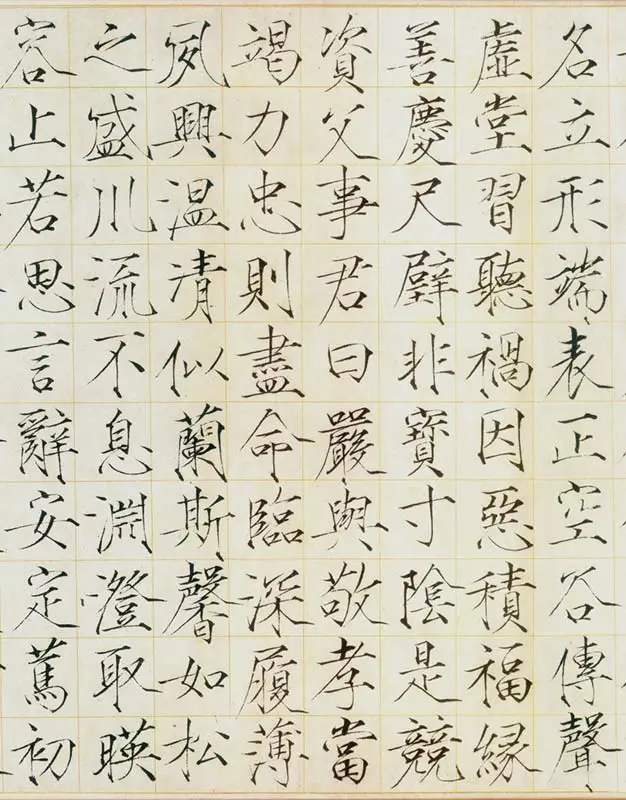 名立形端表正空谷傳聲
虚堂習聽禍因惡積福緣
善慶尺璧非寶寸陰是競
資父事君曰嚴與敬孝當
竭力忠則盡命臨深履薄
夙興温清似蘭斯馨如松
之盛川流不息淵澄取暎
容止若思言辭安定篤初